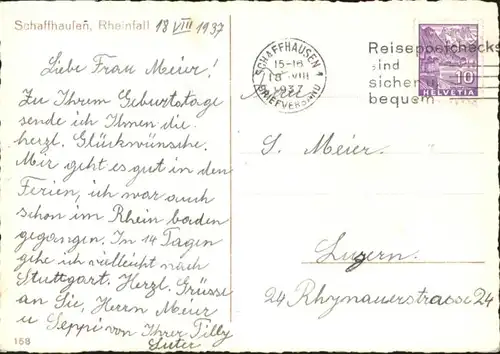 Schaffhausen, Rheinfall 18 VIII 1937
Liebe Frau Meier!
Zu Ihrem Geburtstage
sende ich Ihnen die
herzl. Glückwünsche.
Mir geht es gut in den
Ferien, ich war auch
schon im Rhein baden
gegangen. In 14 Tagen
gehe ich vielleicht nach
Stuttgart. Herzl. Grüsse
an Sie, Herrn Meier
u Seppi von Ihrer Tilly
Suter
158
SCHAFFHAUSEN 1
15-16
18 VIII
1937
BRIEFVERSAND
Reisepostchecks
sind
sicher u.
bequem
10
HELVETIA
S. Meier.
Luzern.
24 Rhynauerstrasse 24